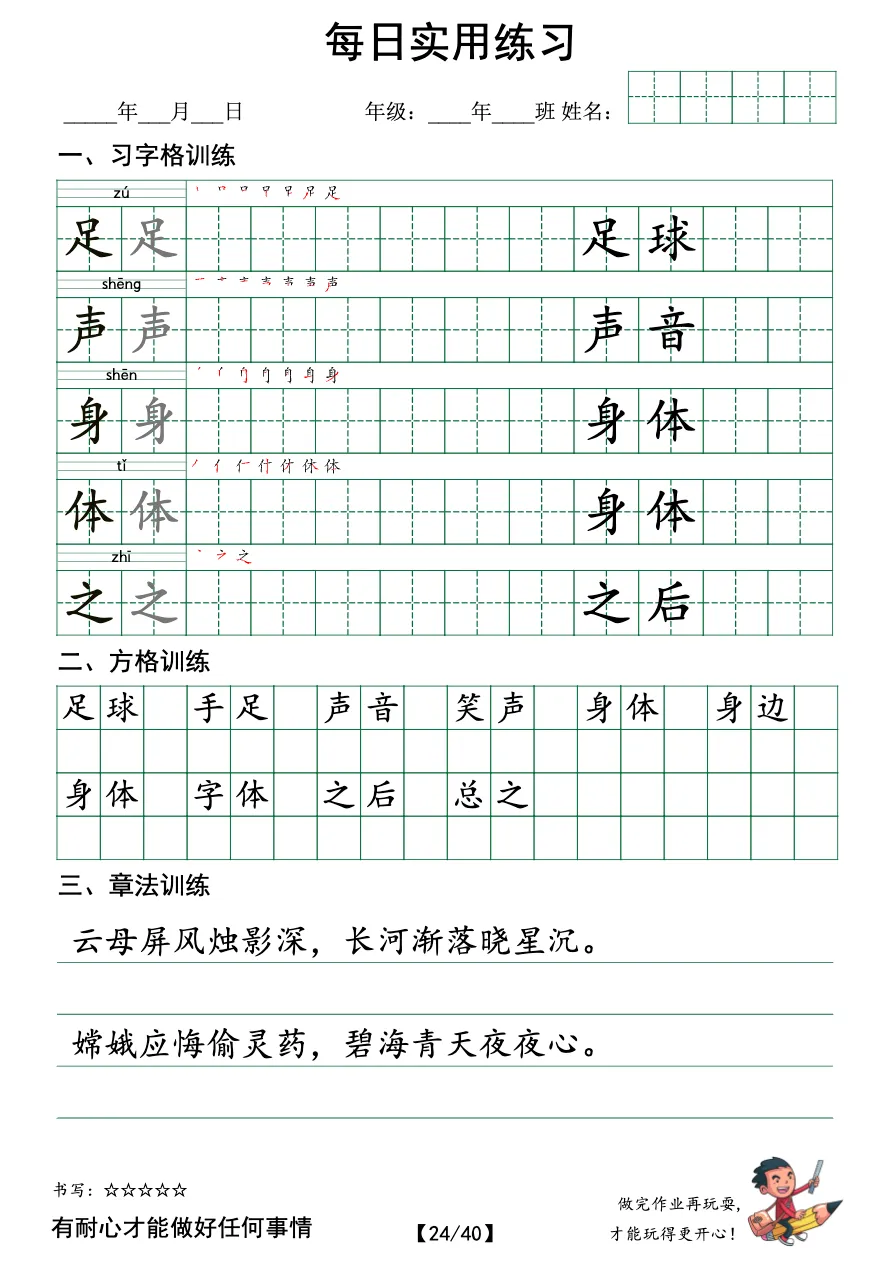 每日实用练习
_____年___月___日 年级：____年____班 姓名：
一、习字格训练
zú
足 足 足 球
shēng
声 声 声 音
shēn
身 身 身 体
tǐ
体 体 身 体
zhī
之 之 之 后
二、方格训练
足球 手足 声音 笑声 身体 身边
身体 字体 之后 总之
三、章法训练
云母屏风烛影深，长河渐落晓星沉。
嫦娥应悔偷灵药，碧海青天夜夜心。
书写：☆☆☆☆☆
做完作业再玩耍，
有耐心才能做好任何事情
【24/40】
才能玩得更开心！